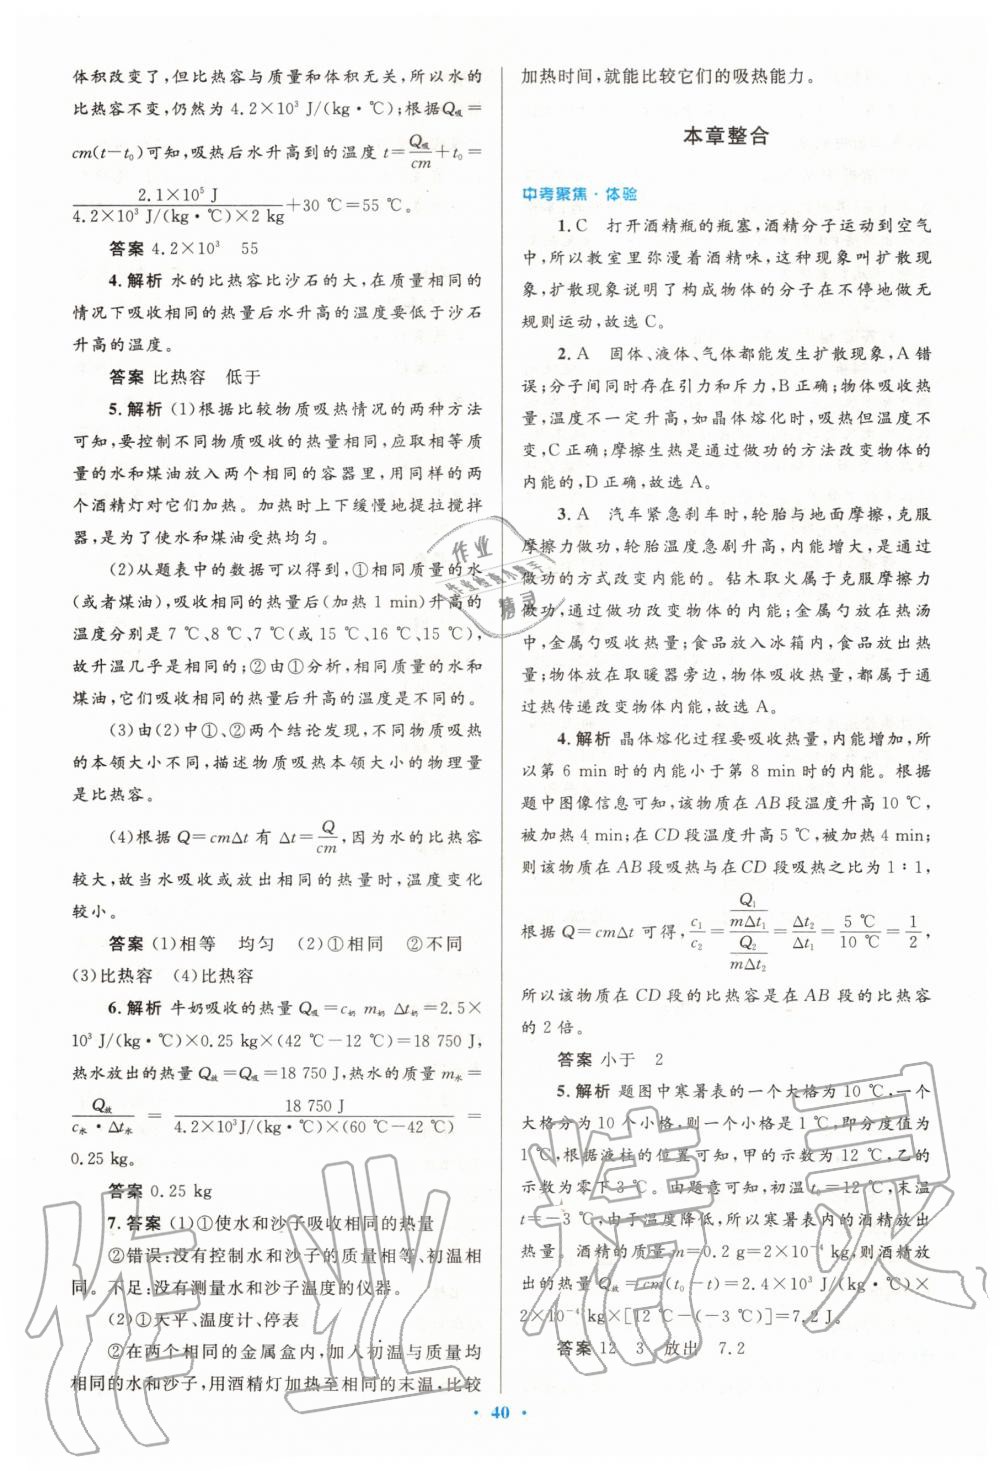 体积改变了,但比热容与质量和体积无关,所以水的
比热容不变,仍然为 4.2×10³ J/(kg·℃);根据Q吸=
cm(t-t₀)可知,吸热后水升高到的温度 t=Q吸/cm+t₀=
2.1×10⁵ J/4.2×10³ J/(kg·℃)×2 kg+30 ℃=55 ℃。
答案 4.2×10³ 55
4.解析 水的比热容比沙石的大,在质量相同的
情况下吸收相同的热量后水升高的温度要低于沙石
升高的温度。
答案 比热容 低于
5.解析 (1)根据比较物质吸热情况的两种方法
可知,要控制不同物质吸收的热量相同,应取相等质
量的水和煤油放入两个相同的容器里,用同样的两
个酒精灯对它们加热。加热时上下缓慢地提拉搅拌
器,是为了使水和煤油受热均匀。
(2)从题表中的数据可以得到,①相同质量的水
(或者煤油),吸收相同的热量后(加热 1 min)升高的
温度分别是 7 ℃、8 ℃、7 ℃(或 15 ℃、16 ℃、15 ℃),
故升温几乎是相同的;②由①分析,相同质量的水和
煤油,它们吸收相同的热量后升高的温度是不同的。
(3)由(2)中①、②两个结论发现,不同物质吸热
的本领大小不同,描述物质吸热本领大小的物理量
是比热容。
(4)根据 Q=cmΔt 有 Δt=Q/cm,因为水的比热容
较大,故当水吸收或放出相同的热量时,温度变化
较小。
答案 (1)相等 均匀 (2)①相同 ②不同
(3)比热容 (4)比热容
6.解析 牛奶吸收的热量 Q吸=c奶 m奶 Δt奶=2.5×
10³ J/(kg·℃)×0.25 kg×(42 ℃-12 ℃)=18 750 J,
热水放出的热量 Q放=Q吸=18 750 J,热水的质量 m水=
Q放/c水·Δt水=18 750 J/4.2×10³J/(kg·℃)×(60 ℃-42 ℃)=
0.25 kg。
答案 0.25 kg
7.答案 (1)①使水和沙子吸收相同的热量
②错误:没有控制水和沙子的质量相等、初温相
同。不足:没有测量水和沙子温度的仪器。
(2)①天平、温度计、停表
②在两个相同的金属盒内,加入初温与质量均
相同的水和沙子,用酒精灯加热至相同的末温,比较
加热时间,就能比较它们的吸热能力。
本章整合
中考聚焦·体验
1.C 打开酒精瓶的瓶塞,酒精分子运动到空气
中,所以教室里弥漫着酒精味,这种现象叫扩散现
象,扩散现象说明了构成物体的分子在不停地做无
规则运动,故选 C。
2.A 固体、液体、气体都能发生扩散现象,A 错
误;分子间同时存在引力和斥力,B 正确;物体吸收热
量,温度不一定升高,如晶体熔化时,吸热但温度不
变,C 正确;摩擦生热是通过做功的方法改变物体的
内能的,D 正确,故选 A。
3.A 汽车紧急刹车时,轮胎与地面摩擦,克服
摩擦力做功,轮胎温度急剧升高,内能增大,是通过
做功的方式改变内能的。钻木取火属于克服摩擦力
做功,通过做功改变物体的内能;金属勺放在热汤
中,金属勺吸收热量;食品放入冰箱内,食品放出热
量;物体放在取暖器旁边,物体吸收热量,都属于通
过热传递改变物体内能,故选 A。
4.解析 晶体熔化过程要吸收热量,内能增加,所
以第 6 min 时的内能小于第 8 min 时的内能。根据
题中图像信息可知,该物质在 AB 段温度升高 10 ℃,
被加热 4 min;在 CD 段温度升高 5 ℃,被加热 4 min;
则该物质在 AB 段吸热与在 CD 段吸热之比为 1∶1,
根据 Q=cmΔt 可得,c₁/c₂=(Q₁/mΔt₁)/(Q₂/mΔt₂)=Δt₂/Δt₁=5 ℃/10 ℃=1/2,
所以该物质在 CD 段的比热容是在 AB 段的比热容
的 2 倍。
答案 小于 2
5.解析 题图中寒暑表的一个大格为 10 ℃,一个
大格分为 10 个小格,则一个小格是 1 ℃,即分度值为
1 ℃,根据液柱的位置可知,甲的示数为 12 ℃,乙的
示数为零下 3 ℃。由题意可知,初温 t₀=12 ℃,末温
t=-3 ℃,由于温度降低,所以寒暑表内的酒精放出
热量。酒精的质量 m=0.2 g=2×10⁻⁴ kg,则酒精放
出的热量 Q放=cm(t₀-t)=2.4×10³ J/(kg·℃)×
2×10⁻⁴ kg×[12 ℃-(-3 ℃)]=7.2 J。
答案 12 3 放出 7.2
· 40 ·
作业
精灵
作业精灵